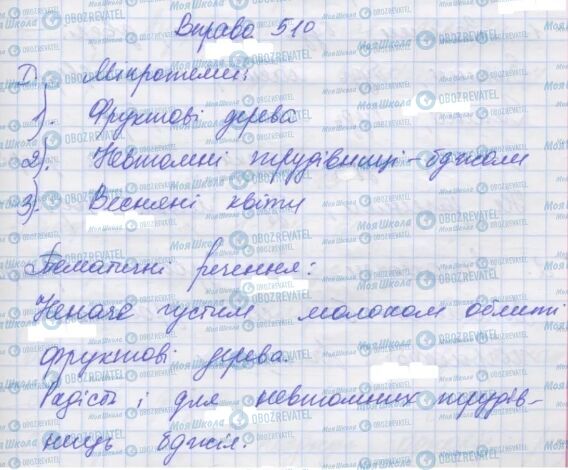 Вправа 510
I. Мікротеми:
1). Фруктові дерева
2). Невтомні трудівниці - бджоли
3). Весняні квіти
Тематичні речення:
Неначе густим молоком облиті
фруктові дерева.
Радість і для невтомних трудів-
ниць бджіл.